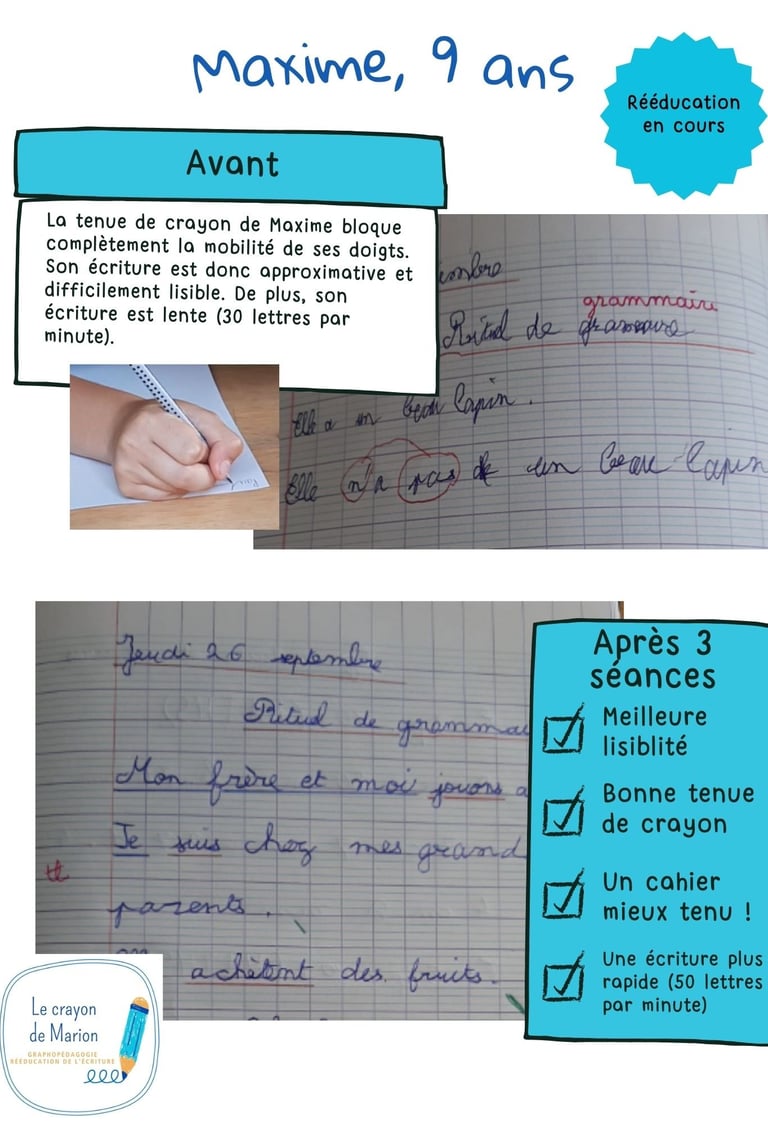 Maxime, 9 ans
Rééducation
en cours
Avant
La tenue de crayon de Maxime bloque
complètement la mobilité de ses doigts.
Son écriture est donc approximative et
difficilement lisible. De plus, son
écriture est lente (30 lettres par
minute).
embre
grammaire
Rituel de
Elle a un beau lapin.
Elle n'a pas de un beau lapin
Jeudi 26 septembre
Rituel de gramma
Mon frère et moi jouons a
Je suis chez mes grand
parents.
on achètent des fruits.
Après 3
séances
Meilleure
lisiblité
Bonne tenue
de crayon
Un cahier
mieux tenu !
Une écriture plus
rapide (50 lettres
par minute)
Le crayon
de Marion
GRAPHOPÉDAGOGIE
RÉÉDUCATION DE L'ÉCRITURE